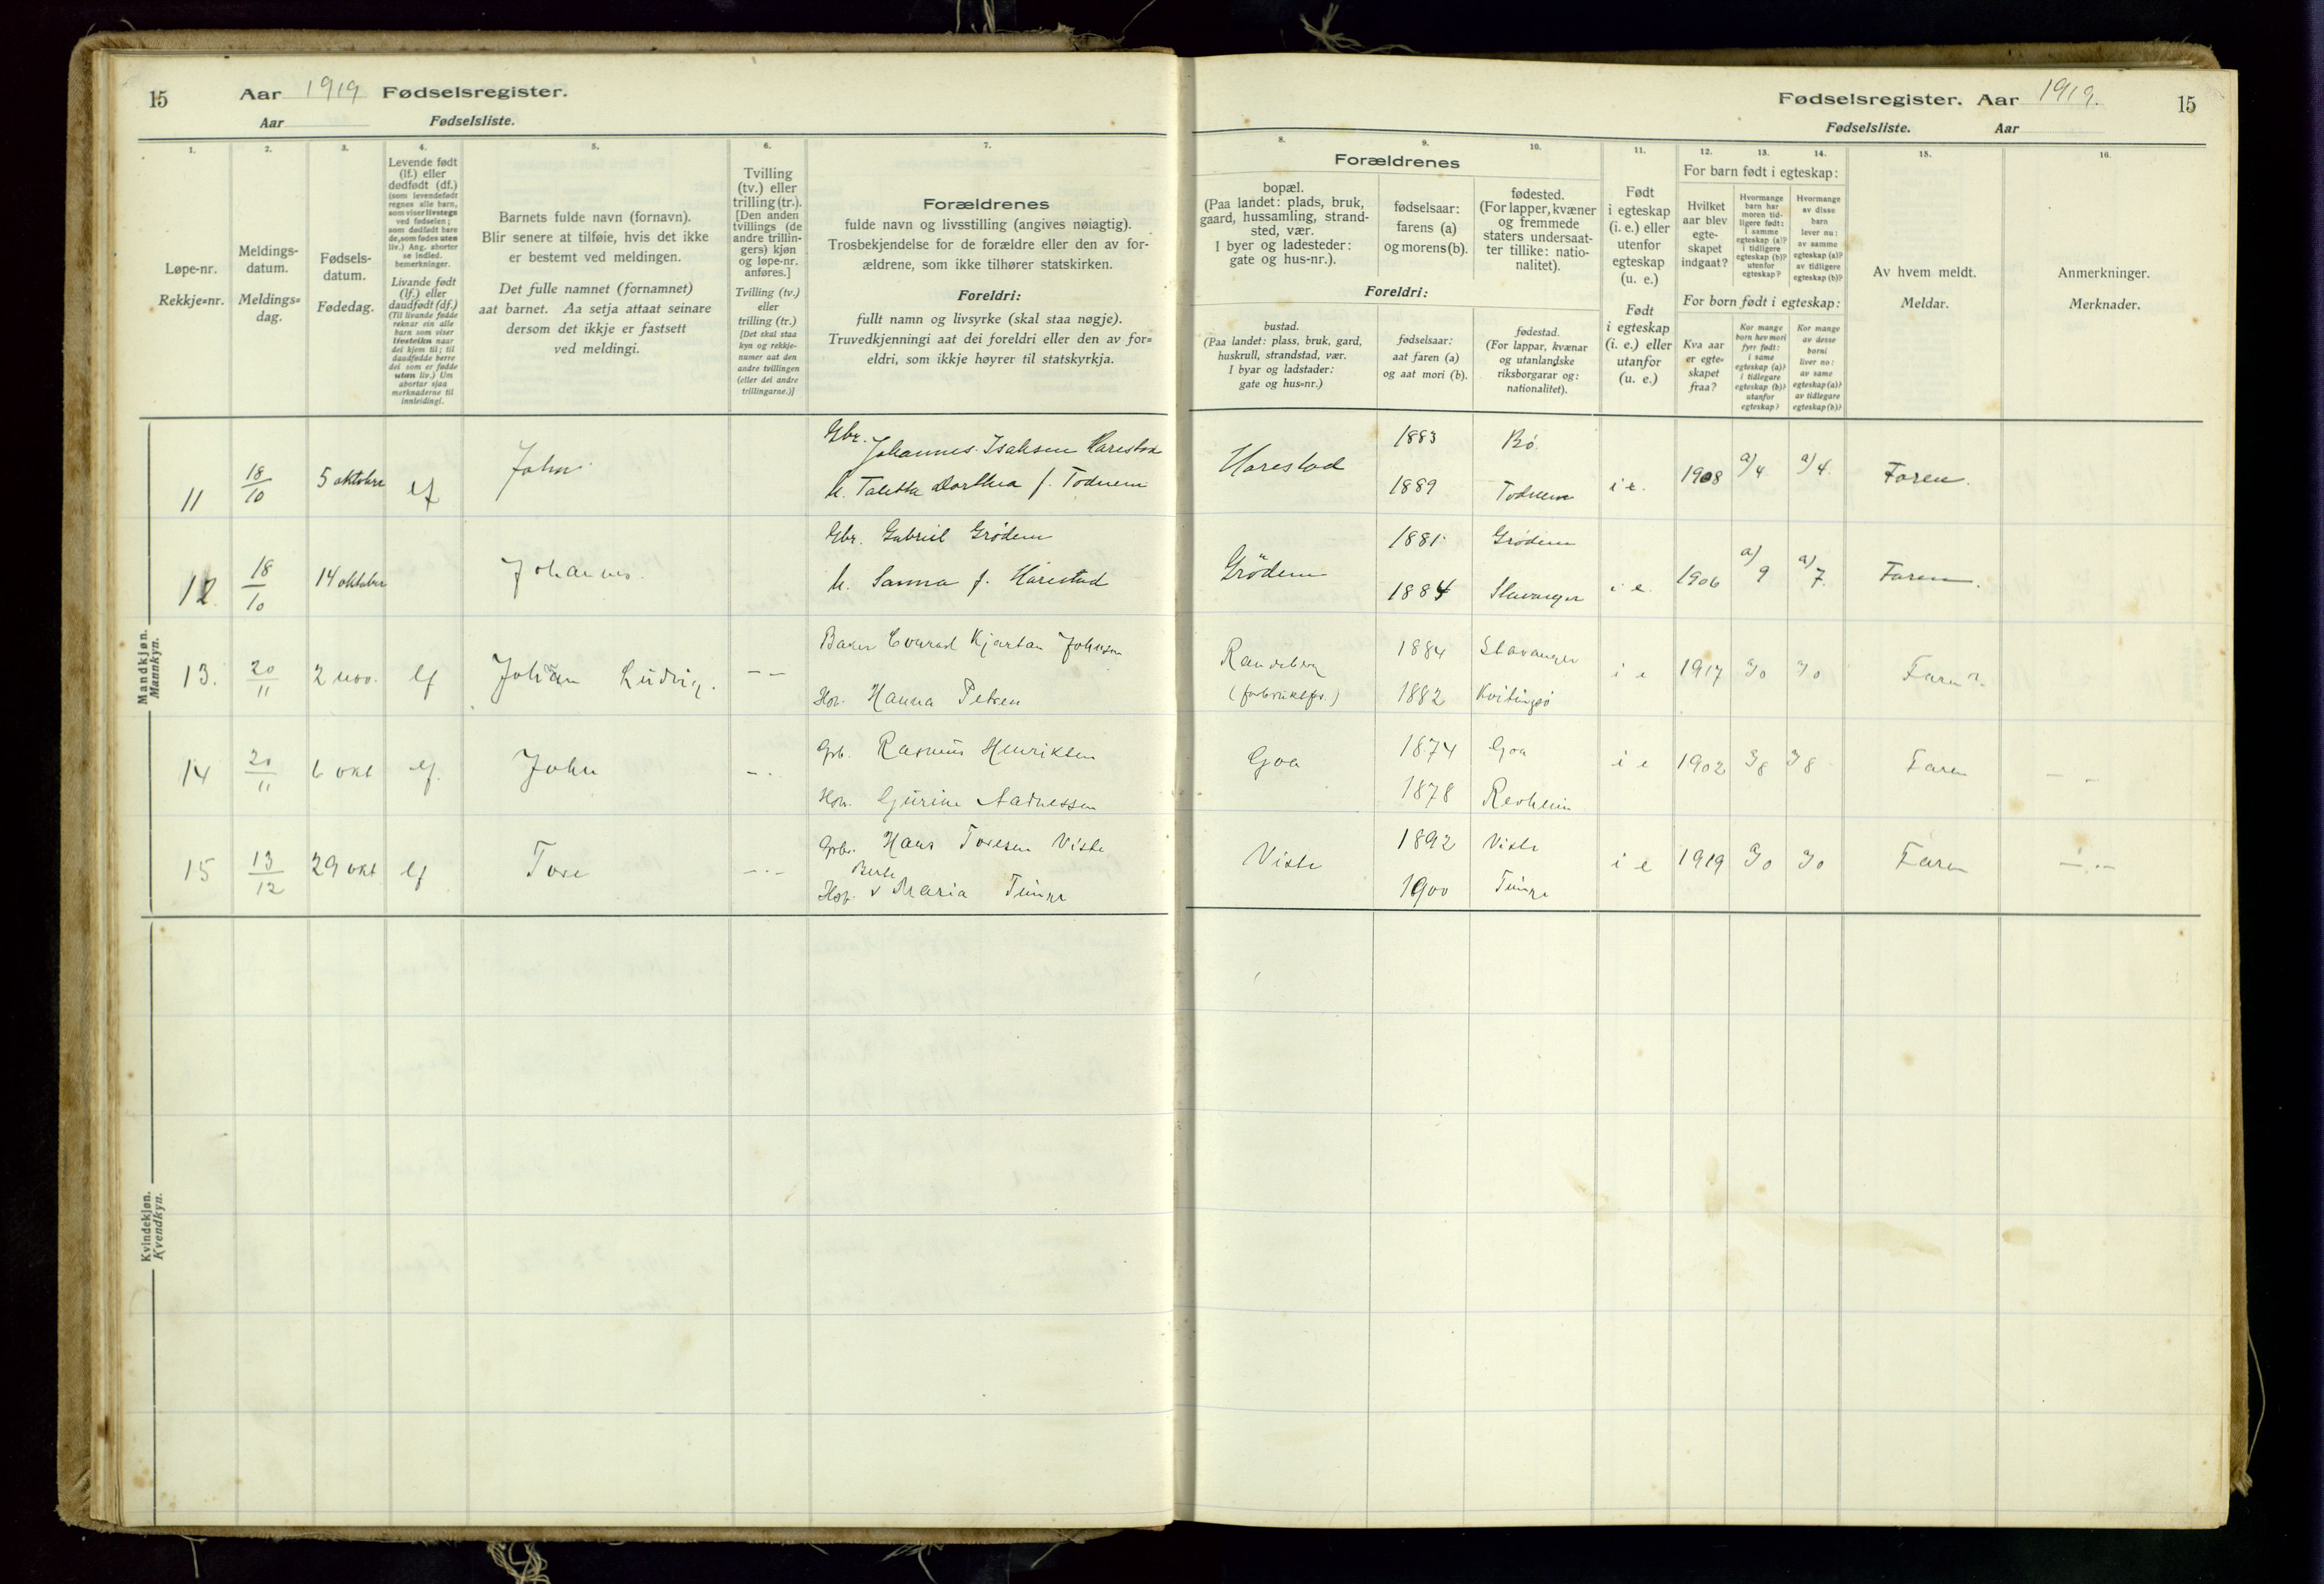 15 Aar 1919 Fødselsregister.
Aar Fødselsliste.
1. 2. 3. 4. 5. 6. 7.
Løpe-nr.
Rekkje-nr.
Meldings-
datum.
Meldings-
dag.
Fødsels-
datum.
Fødedag.
Levende født
(lf.) eller
dødfødt (df.)
(som levendefødt
regnes alle barn,
som viser livstegn
ved fødselen;
som dødfødt bare
de, som fødes uten
liv.) Ang. aborter
se indled.
bemerkninger.
Livande født
(lf.) eller
daudfødt (df.)
(Til livande fødde
reknar ein alle
barn som viser
livsteikn naar
dei kjem til; til
daudfødde berre
dei som er fødde
utan liv.) Um
abortar sjaa
merknaderne til
innleidingi.
Barnets fulde navn (fornavn).
Blir senere at tilføie, hvis det ikke
er bestemt ved meldingen.
Det fulle namnet (fornamnet)
aat barnet. Aa setja attaat seinare
dersom det ikkje er fastsett
ved meldingi.
Tvilling
(tv.) eller
trilling (tr.).
[Den anden
tvillings (de
andre trillin-
gers) kjøn
og løpe-nr.
anføres.]
Tvilling (tv.)
eller
trilling (tr.)
[Det skal staa
kyn og rekkje-
numer aat den
andre tvillingen
(eller dei andre
trillingarne.)]
Forældrenes
fulde navn og livsstilling (angives nøiagtig).
Trosbekjendelse for de forældre eller den av for-
ældrene, som ikke tilhører statskirken.
Foreldri:
fullt namn og livsyrke (skal staa nøgje).
Truvedkjenningi aat dei foreldri eller den av for-
eldri, som ikkje høyrer til statskyrkja.
Mandkjøn.
Mannkyn.
11 18/10 5 oktober lf John
Gbr. Johannes Isaksen Harestad
h. Taletta Dorthea f. Todnem
12 18/10 14 oktober Johannes.
Gbr. Gabriel Grödem
h. Sanna f. Harestad
13. 20/11 2 nov. lf Johan Ludvig. – –
Baker Conrad Kjartan Johnsen
Hou. Hanna Petersen
14 20/11 6 okt lf. John – .
Gbr. Rasmus Henriksen
Hou. Gurine Aadnessen
15 13/12 29 okt lf Tore – · –
Gbr. Hans Toresen Viste
Berte
Hou. v Maria Tunge
Kvindekjøn.
Kvendkyn.
Fødselsregister. Aar 1919. 15
Fødselsliste. Aar
8. 9. 10. 11. 12. 13. 14. 15. 16.
Forældrenes
bopæl.
(Paa landet: plads, bruk,
gaard, hussamling, strand-
sted, vær.
I byer og ladesteder:
gate og hus-nr.).
fødselsaar:
farens (a)
og morens (b).
fødested.
(For lapper, kvæner
og fremmede
staters undersaat-
ter tillike: natio-
nalitet).
Foreldri:
bustad.
(Paa landet: plass, bruk, gard,
huskrull, strandstad, vær.
I byar og ladstader:
gate og hus-nr.)
fødselsaar:
aat faren (a)
og aat mori (b).
fødestad.
(For lappar, kvænar
og utanlandske
riksborgarar og:
nationalitet).
Født
i egteskap
(i. e.) eller
utenfor
egteskap
(u. e.)
Født
i egteskap
(i. e.) eller
utanfor
(u. e.)
For barn født i egteskap:
Hvilket
aar blev
egte-
skapet
indgaat?
Hvormange
barn har
moren tid-
ligere født:
i samme
egteskap (a)?
i tidligere
egteskap (b)?
utenfor
egteskap?
Hvormange
av disse
barn
lever nu:
av samme
egteskap (a)?
av tidligere
egteskap (b)?
For born født i egteskap:
Kva aar
er egte-
skapet
fraa?
Kor mange
born hev mori
fyrr født:
i same
egteskap (a)?
i tidlegare
egteskap (b)?
utanfor
egteskap?
Kor mange
av desse
borni
liver no:
av same
egteskap (a)?
av tidlegare
egteskap (b)?
Av hvem meldt.
Meldar.
Anmerkninger.
Merknader.
Harestad 1883 Bö.
1889 Todnem i e. 1908 a)/4 a)/4. Faren.
Grödem 1881 Grödem
1884 Stavanger i e. 1906 a) 9 a) 7. Faren.
Randeberg 1884 Stavanger
1882 Kvitingsö i e 1917 a/0 a/0 Faren
Goa 1874 Goa
1878 Revheim i e 1902 a/8 a/8 Faren – –
Viste 1892 Viste
1900 Tunge i e 1919 a/0 a/0 Faren – · –